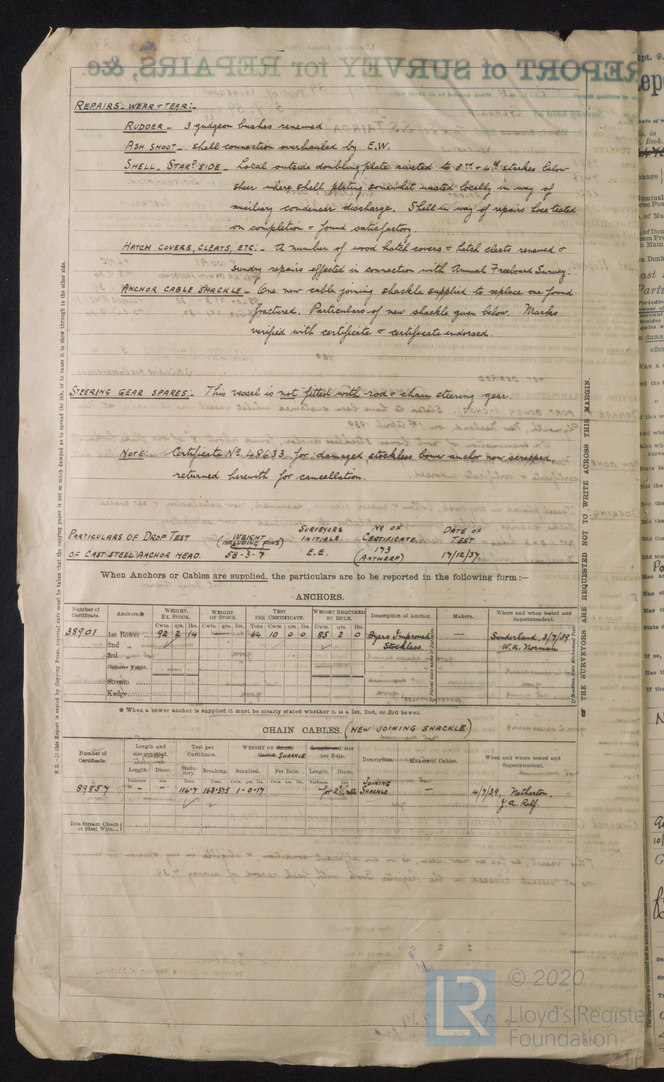 REPORT of SURVEY for REPAIRS, &c.
REPAIRS - WEAR & TEAR:-
RUDDER - 3 gudgeon bushes renewed
ASH SHOOT - shell connection overhauled by E.W.
SHELL - STARD SIDE - Local outside doubling plate riveted to 3rd & 4th strakes below
sheer where shell plating somewhat wasted locally in way of
auxiliary condenser discharge. Shell in way of repairs hose tested
on completion & found satisfactory.
HATCH COVERS, CLEATS, ETC:- A number of wood hatch covers & hatch cleats renewed &
sundry repairs effected in connection with Annual Freeboard Survey.
ANCHOR CABLE SHACKLE - One new cable joining shackle supplied to replace one found
fractured. Particulars of new shackle given below. Marks
verified with certificate & certificate endorsed.
STEERING GEAR SPARES:- This vessel is not fitted with rod & chain steering gear.
NOTE: Certificate No 48633 for damaged stockless bower anchor now scrapped,
returned herewith for cancellation.
PARTICULARS OF DROP TEST
OF CAST STEEL ANCHOR HEAD.
WEIGHT (INCLUDING PINS) 58-3-7
SURVEYORS INITIALS E.E.
No OF CERTIFICATE 173 (ANTWERP)
DATE OF TEST 17/12/37.
When Anchors or Cables are supplied, the particulars are to be reported in the following form :—
ANCHORS.
Number of Certificate. Anchors.* WEIGHT, EX. STOCK. WEIGHT OF STOCK. TEST PER CERTIFICATE. WEIGHT REQUIRED BY RULE. Description of Anchor. Makers. Where and when tested and Superintendent.
Cwts. qrs. lbs. Cwts. qrs. lbs. Tons Cwts. qrs. lbs. Cwts. qrs. lbs.
38901 1st Bower ... 92 2 14 — 64 10 0 0 85 2 0 Byers Improved Stockless. — Sunderland, 3/7/39 W.H. Norman
2nd „
3rd „
Collective Weight.
Stream
Kedge
* When a bower anchor is supplied it must be clearly stated whether it is a 1st, 2nd, or 3rd bower.
CHAIN CABLES. (NEW JOINING SHACKLE)
Number of Certificate. Length and size supplied. Test per Certificate. WEIGHT OF SHACKLE Length and size per Rule. Description. Makers of Cables. Where and when tested and Superintendent.
Length. Diam. Statutory. Breaking. Supplied. Per Rule. Length. Diam.
89857 - - 116·7 163·375 1-0-17 JOINING SHACKLE — 4/7/39, Netherton. J.A. Relf.
Iron Stream Chain or Steel Wire...
THE SURVEYORS ARE REQUESTED NOT TO WRITE ACROSS THIS MARGIN.
LR
© 2020
Lloyd's Register
Foundation